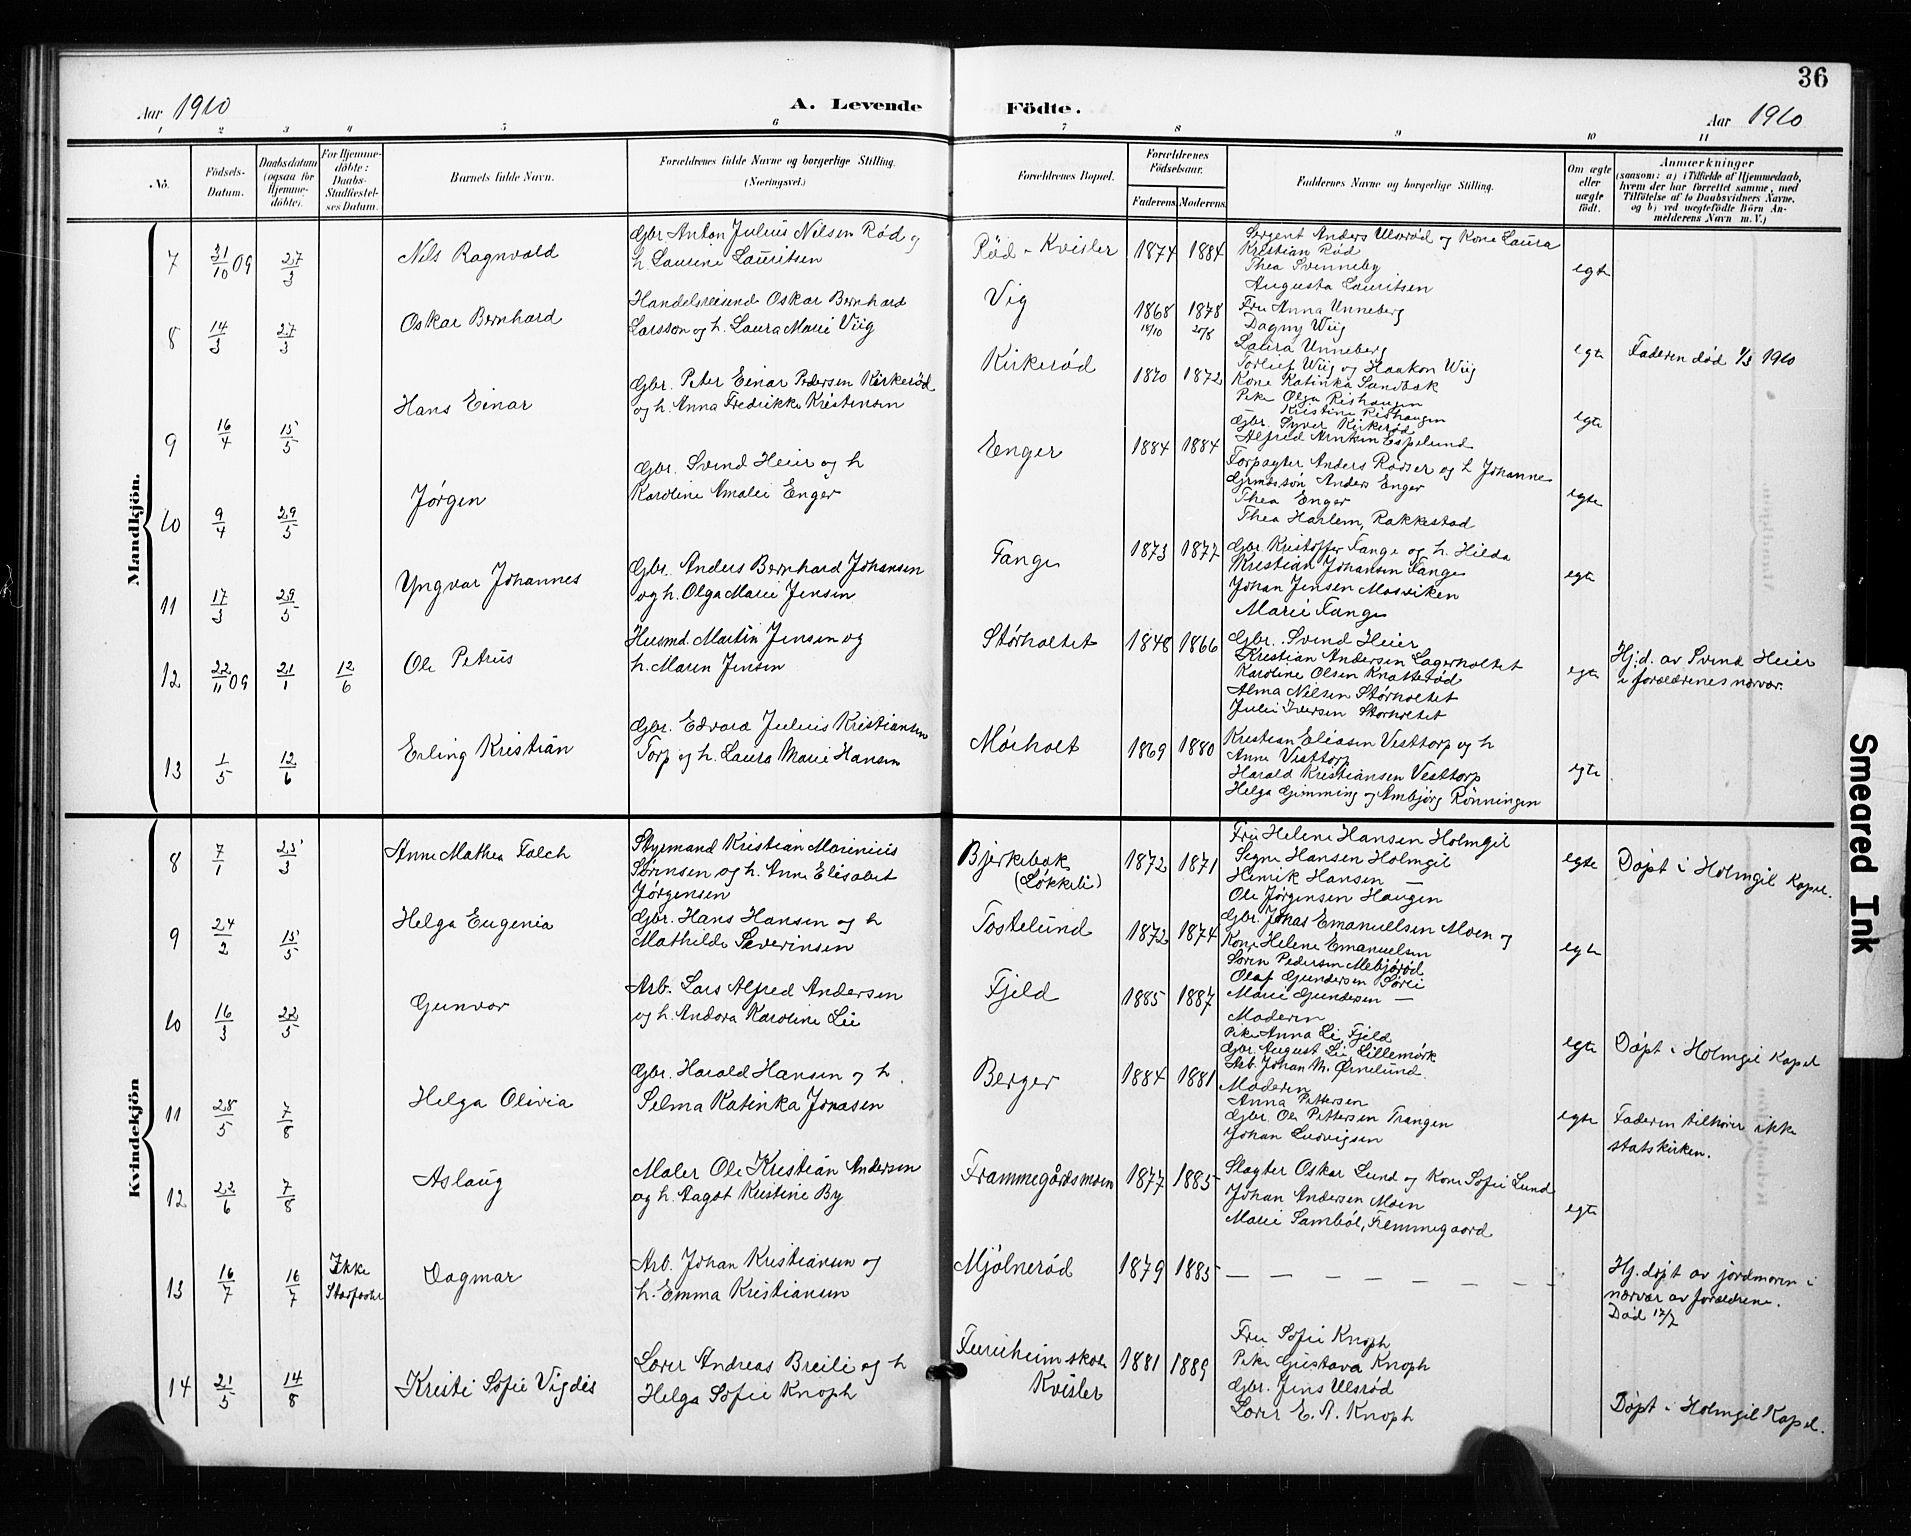 36
Aar 1910
A. Levende Födte.
Aar 1910
1 2 3 4 5 6 7 8 9 10 11
Nö.
Födsels-Datum.
Daabsdatum (ogsaa for Hjemme-döbte).
For Hjemme-döbte: Daabs-Stadfæstel-ses Datum.
Barnets fulde Navn.
Forældrenes fulde Navne og borgerlige Stilling.
(Næringsvei.)
Forældrenes Bopæl.
Forældrenes Födselsaar.
Faderens. Moderens.
Faddernes Navne og borgerlige Stilling.
Om ægte eller uægte født.
Anmærkninger
(saasom: a) i Tilfælde af Hjemmedaab,
hvem der har forrettet samme, med
Tilføielse af to Daabsvidners Navne,
og b) ved uægtefødte Börn An-
melderens Navn m. V.)
Mandkjön.
7 31/10 09 27/3 Nils Ragnvald
Gbr Anton Julius Nilsen Rød og
h. Laurine Lauritsen
Rød - Kvisler 1874 1884
Sergent Anders Ulsrød og Kone Laura
Kristian Rød
Thea Svenneby
Augusta Lauritsen
egte
8 14/3 27/3 Oskar Bernhard
Handelsreisend Oskar Bernhard
Larsson og h. Laura Marie Viig
Vig 1868 1878
20/8
Fru Anna Unneberg
Dagny Wiig
Laura Unneberg
Torleif Wiig og Haakon Wiig
egte
Faderen død 1/3 1910
9 16/4 15/5 Hans Einar
Gbr. Peter Einar Pedersen Kirkerød
og h. Anna Fredrikke Kristensen
Kirkerød 1870 1872
Kone Katinka Sandbæk
Pike Olga Rishaugen
Kristine Rishaugen
Gbr. Syver Kirkerød
Alfred Arntsen Espelund
egte
10 9/4 29/5 Jørgen
Gbr. Svend Heier og h
Karoline Amalie Enger
Enger 1884 1884
Forpagter Anders Rødser og h Johanne
Grmdssøn Anders Enger
Thea Enger
Thea Harlem, Rakkestad
egte
11 17/3 29/5 Yngvar Johannes
Gbr. Anders Bernhard Johansen
og h. Olga Marie Jensen
Tange 1873 1877
Gbr. Kristoffer Tange og h. Hilda
Kristian Johansen Tange
Johan Jensen Mosviken
Marie Tange
egte
12 22/11 09 21/1 12/6 Ole Petrus
Husmd. Martin Jensen og
h. Maren Jensen
Størholtet 1848 1866
Gbr. Svend Heier
Kristian Andersen Lagerholtet
Karoline Olsen Knatterød
Alma Nilsen Størholtet
Julie Iversen Størholtet
egte
Hj.d. av Svend Heier
i forældrenes nærvær.
13 1/5 12/6 Erling Kristian
Gbr. Edvard Julius Kristiansen
Torp og h. Laura Marie Hansen
Mørholt 1869 1880
Kristian Eliasen Vesttorp og h
Anne Vesttorp
Harald Kristiansen Vesttorp
Helga Gimming og Ambjørg Rønningen
egte
Kvindekjön
8 7/1 25/3 Anne Mathea Falch
Styrmand Kristian Marinius
Sørensen og h. Anne Elisabet
Jørgensen
Bjerkebæk
(Løkkeli) 1872 1871
Fru Helene Hansen Holmgil
Signe Hansen Holmgil
Henrik Hansen —
Ole Jørgensen Haugen
egte
Døpt i Holmgil Kapel.
9 24/2 15/5 Helga Eugenia
Gbr. Hans Hansen og h
Mathilde Severinsen
Tostelund 1872 1874
Gbr. Jonas Emanuelsen Moen og
Kone Helene Emanuelsen
Søren Pedersen Mebjørød
Olaf Gundersen Sørli
Marie Gundersen —
egte
10 16/3 22/5 Gunvor
Arb. Lars Alfred Andersen
og h. Andora Karoline Lie
Fjeld 1885 1887
Moderen
Pike Anna Lie Fjeld
Gbr. August Lie Lillemørk
Arb. Johan M. Ørnelund.
egte
Døpt i Holmgil Kapel
11 28/5 7/8 Helga Olivia
Gbr. Harald Hansen og h.
Selma Katinka Jonasen
Berger 1884 1881
Moderen
Anna Pettersen
Gbr Ole Pettersen Trangen
Johan Ludvigsen
egte
Faderen tilhører ikke
statskirken.
12 22/6 7/8 Aslaug
Maler Ole Kristian Andersen
og h. Aagot Kristine By
Frammegårdsmoen 1877 1885
Slagter Oskar Lund og Kone Sofie Lund
Johan Andersen Moen
Marie Sambøl, Fremmegaard
egte
13 16/7 16/7 Ikke
Stadfæstet
Dagmar
Arb. Johan Kristiansen og
h. Emma Kristiansen
Mjølnerød 1879 1885 — — — — — — — —
Hj. døpt av jordmoren i
nærvær av forældrene.
Død 17/7
14 21/5 14/8 Kristi Sofie Vigdis
Lærer Andreas Breili og h
Helga Sofie Knoph
Furuheim skole
Kvisler 1881 1889
Fru Sofie Knoph
Pike Gustava Knoph
Gbr. Jens Ulsrød
Lærer E. A. Knoph
Døpt i Holmgil Kapel.
Smeared Ink